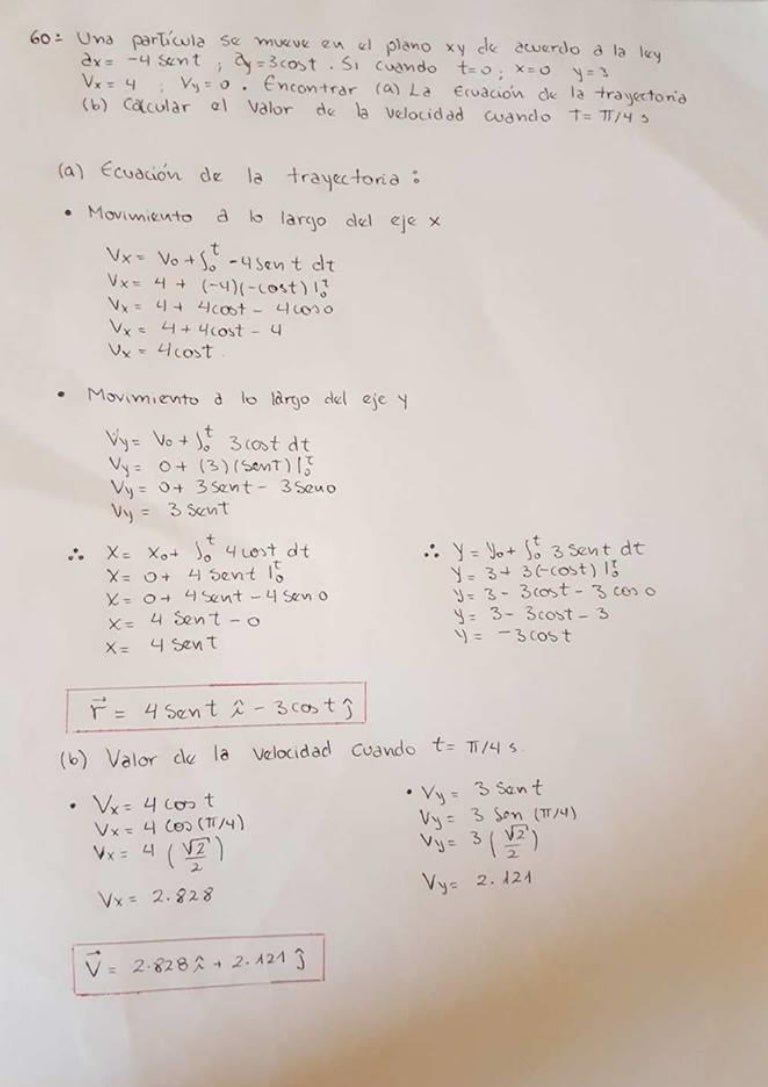 60: Una partícula se mueve en el plano xy de acuerdo a la ley
ax = -4 sent ; ay = 3cost . Si cuando t=0; x=0 y=3
Vx = 4 ; Vy = 0 . Encontrar (a) La Ecuación de la trayectoria
(b) Calcular el Valor de la velocidad cuando t= π/4 s
(a) Ecuación de la trayectoria :
• Movimiento a lo largo del eje x
Vx = Vo + ∫₀ᵗ -4 sen t dt
Vx = 4 + (-4)(-cost) |₀ᵗ
Vx = 4 + 4cost - 4cos0
Vx = 4 + 4cost - 4
Vx = 4cost .
• Movimiento a lo largo del eje y
Vy = Vo + ∫₀ᵗ 3cost dt
Vy = 0 + (3)(sent) |₀ᵗ
Vy = 0 + 3sent - 3sen0
Vy = 3 sent
∴ X = Xo + ∫₀ᵗ 4cost dt
X = 0 + 4 sent |₀ᵗ
X = 0 + 4sent - 4 sen 0
X = 4 sent - 0
X = 4 sent
∴ y = yo + ∫₀ᵗ 3 sent dt
y = 3 + 3(-cost) |₀ᵗ
y = 3 - 3cost - 3 cos 0
y = 3 - 3cost - 3
y = -3cost
r⃗ = 4 sent î - 3cost ĵ
(b) Valor de la velocidad cuando t= π/4 s.
• Vx = 4 cos t
Vx = 4 cos (π/4)
Vx = 4 (√2/2)
Vx = 2.828
• Vy = 3 sent
Vy = 3 sen (π/4)
Vy = 3 (√2/2)
Vy = 2.121
V⃗ = 2.828 î + 2.121 ĵ